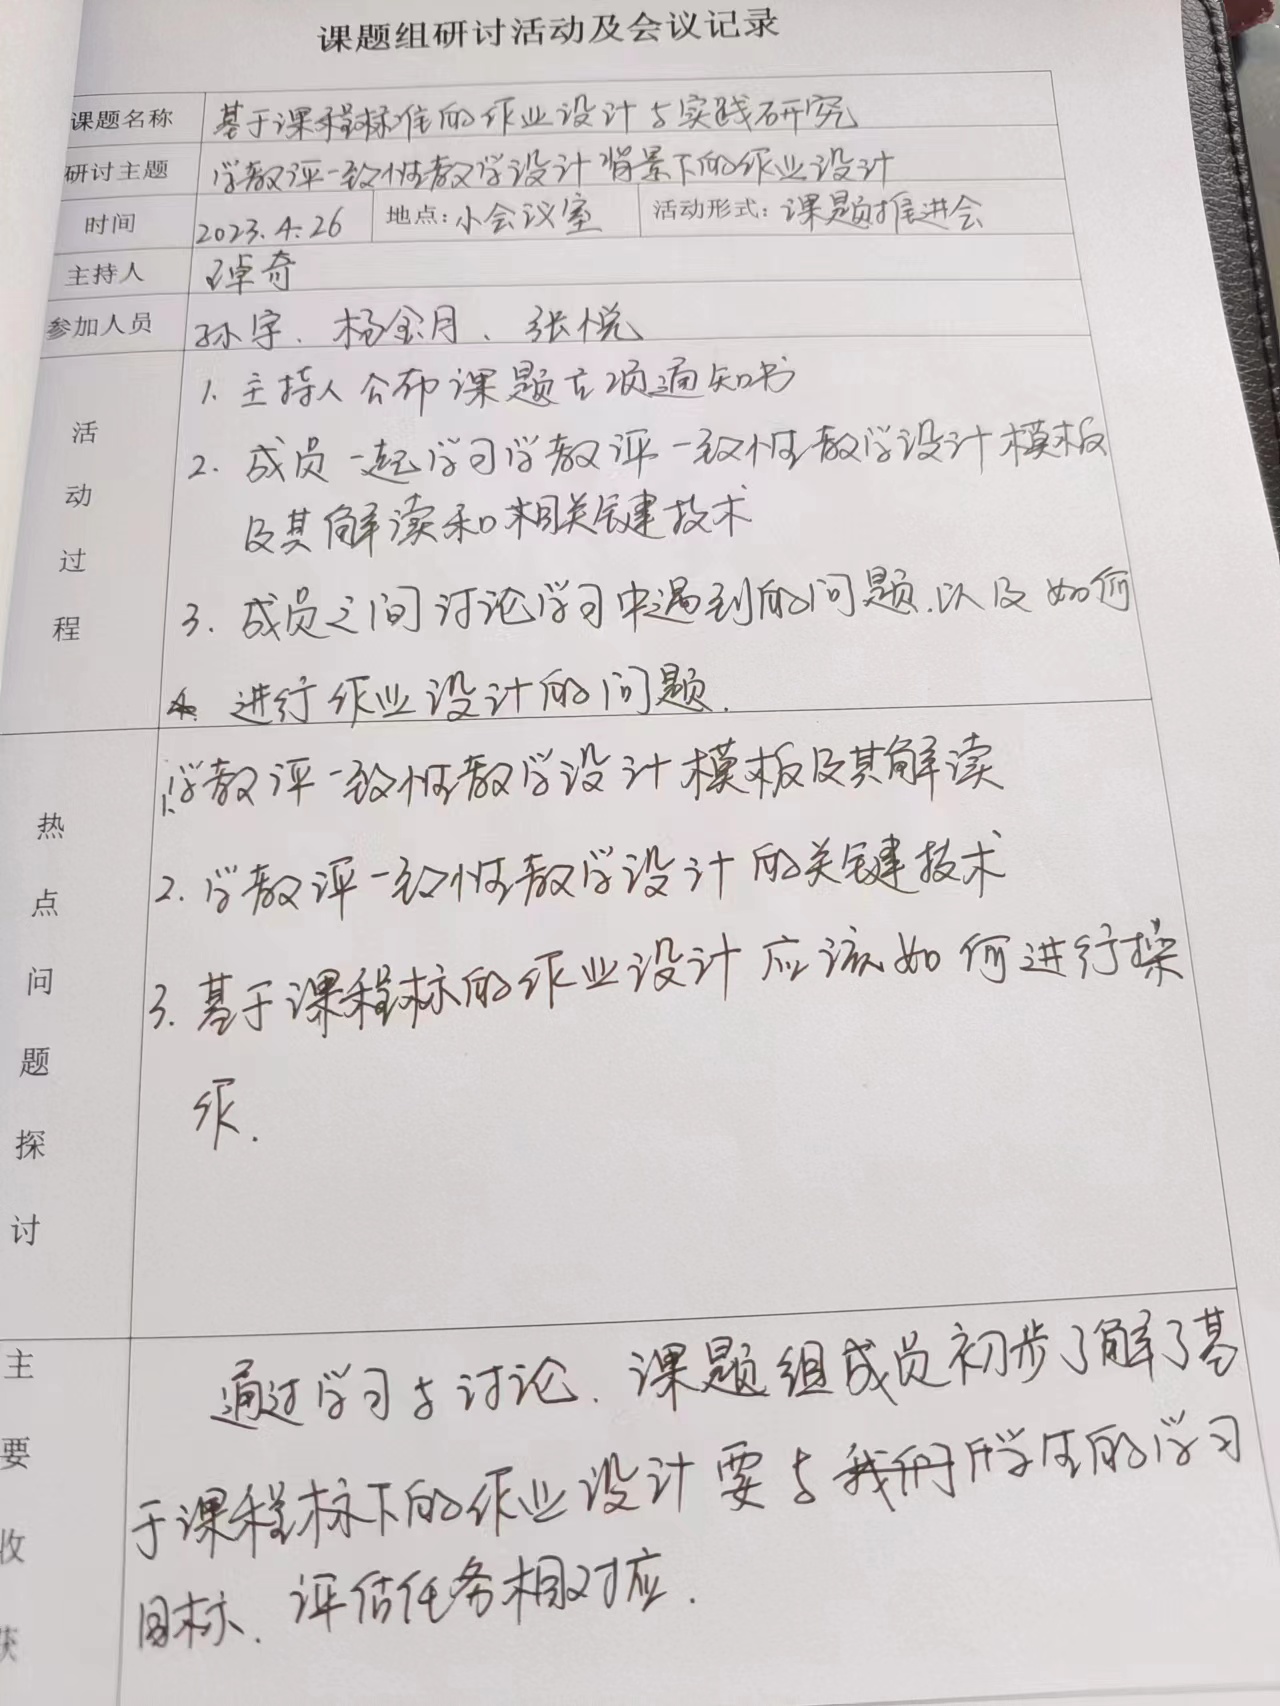 课题组研讨活动及会议记录
课题名称 基于课程标准的作业设计与实践研究
研讨主题 学教评一致性教学设计背景下的作业设计
时间 2023.4.26 地点：小会议室 活动形式：课题推进会
主持人 卓奇
参加人员 孙宇、杨金月、张悦
活动过程
1. 主持人公布课题立项通知书
2. 成员一起学习学教评一致性教学设计模板
及其解读和相关关键技术
3. 成员之间讨论学习中遇到的问题.以及如何
进行作业设计的问题.
热点问题探讨
1.学教评一致性教学设计模板及其解读
2. 学教评一致性教学设计的关键技术
3. 基于课程标的作业设计应该如何进行操
作.
主要收获
通过学习与讨论.课题组成员初步了解了基
于课程标下的作业设计要与学生的学习
目标、评估任务相对应.